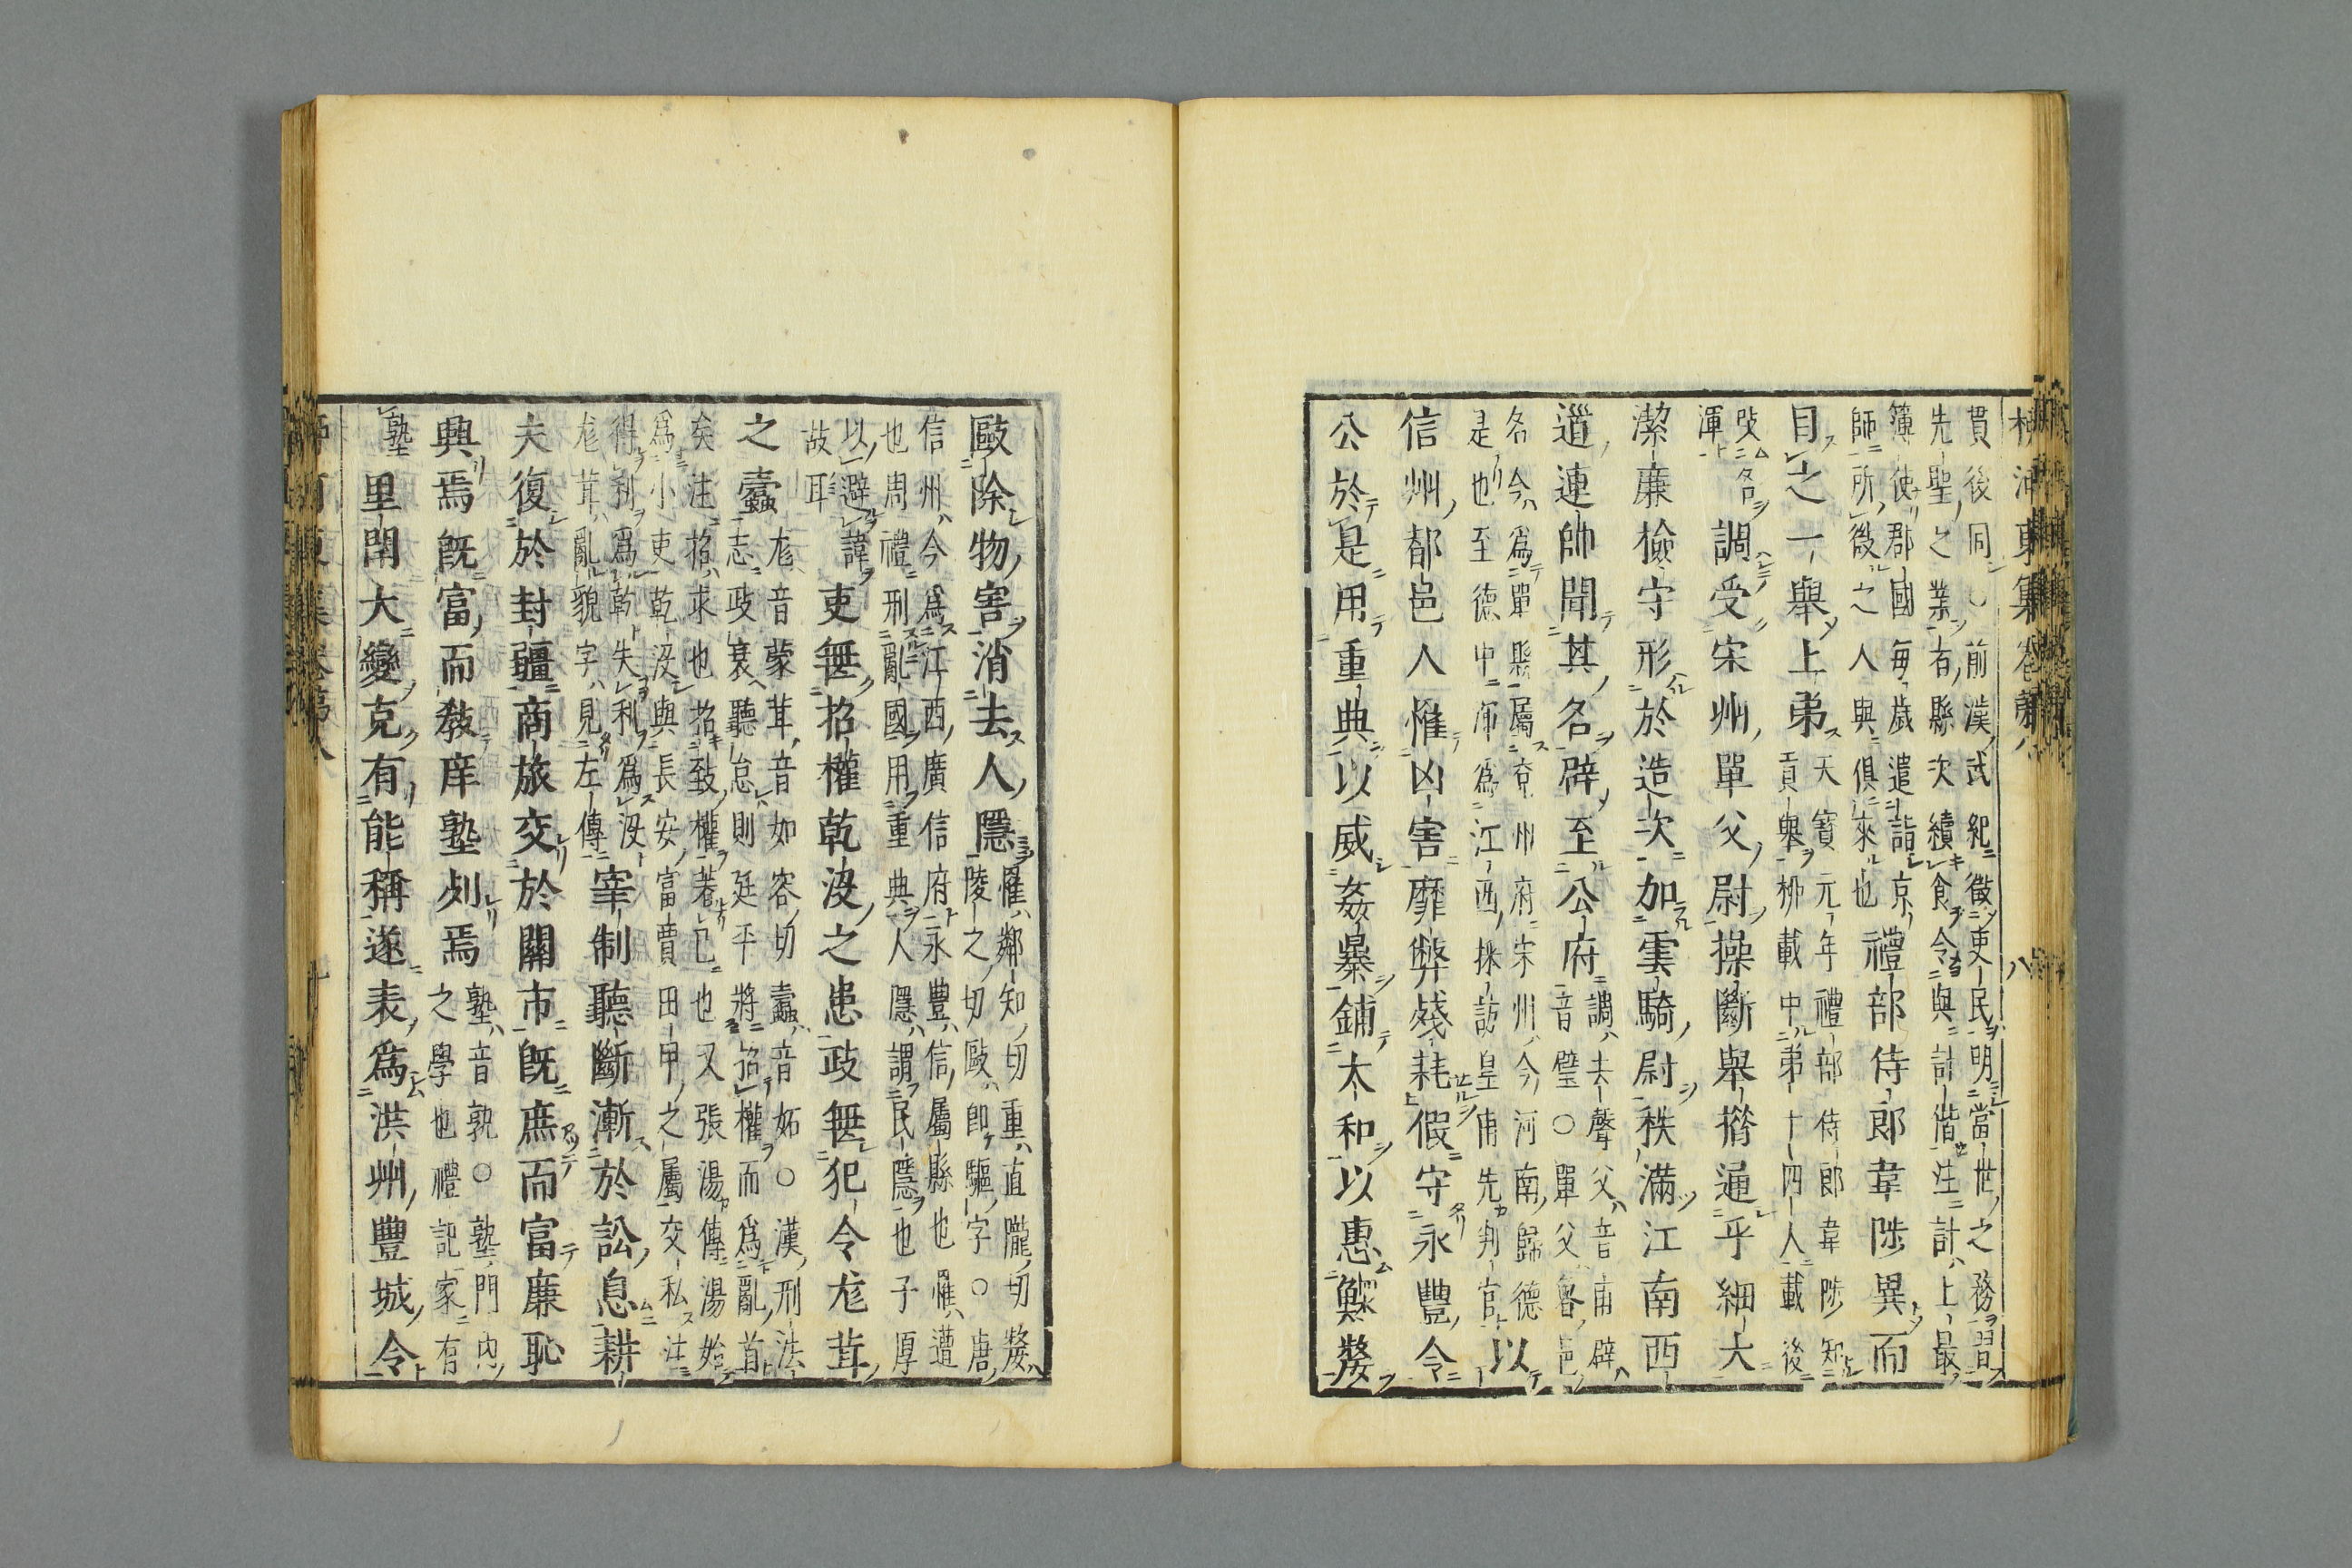 柳河東集卷第八
貫後同○前漢武紀徵吏民明當世之務習
先聖之業者縣次續食令與計偕注計上最
簿使郡國每歲遣詣京
師所徵之人與俱來也
禮部侍郎韋陟異而
目之一舉上弟
天寶元年禮部侍郎韋陟知
貢舉柳載中弟十四人載後
改名
渾
調受宋州單父尉操斷舉措通乎細大
潔廉檢守形於造次加雲騎尉秩滿江南西
道連帥聞其名辟至公府
調去聲父音甫辟
音璧○單父魯邑
名今為單縣屬兗州府宋州今河南歸德
是也至德中渾為江西採訪皇甫先判官
以
信州都邑人惟凶害靡弊殘耗假守永豐令
公於是用重典以威姦暴鋪太和以惠鰥嫠
敺除物害消去人隱
罹鄰知切重直隴切嫠
陵之切敺即驅字○唐
信州今為江西廣信府永豐信屬縣也罹遭
也周禮刑亂國用重典人隱謂民隱也子厚
以避諱
故耳
吏無招權乾沒之患政無犯令尨茸
之蠹
尨音蒙茸音如容切蠹音妬○漢刑法
志政衰聽怠則廷平將招權而為亂首
矣注招求也招致權著己也又張湯傳湯始
為小吏乾沒與長安富賈田甲之屬交私注
得利為乾失利為沒
尨茸亂貌字見左傳
宰制聽斷漸於訟息耕
夫復於封疆商旅交於關市既庶而富廉恥
興焉既富而教庠塾列焉
塾音孰○塾門內
之學也禮記家有
塾
里閈大變克有能稱遂表為洪州豐城令
柳河東集卷第八 十